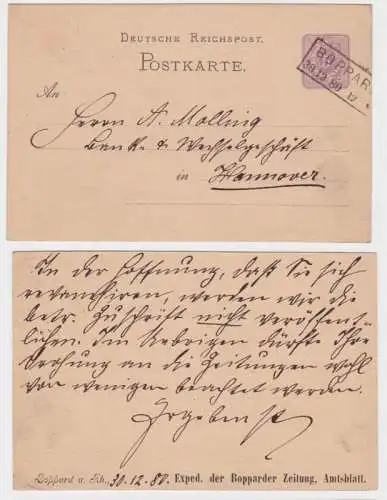 DEUTSCHE REICHSPOST.
POSTKARTE.
BOPPAR
30.12.80 12
An
Herrn A. Molling
Bank- & Wechselgeschäft
in Hannover.
In der Hoffnung, daß Sie sich
revanchiren, werden wir die
betr. Zuschrift nicht veröffent-
lichen. Im Uebrigen dürfte Ihre
Drohung an die Zeitungen wohl
von wenigen beachtet werden.
Ergebenst
Boppard a. Rh., 30.12.80. Exped. der Bopparder Zeitung, Amtsblatt.